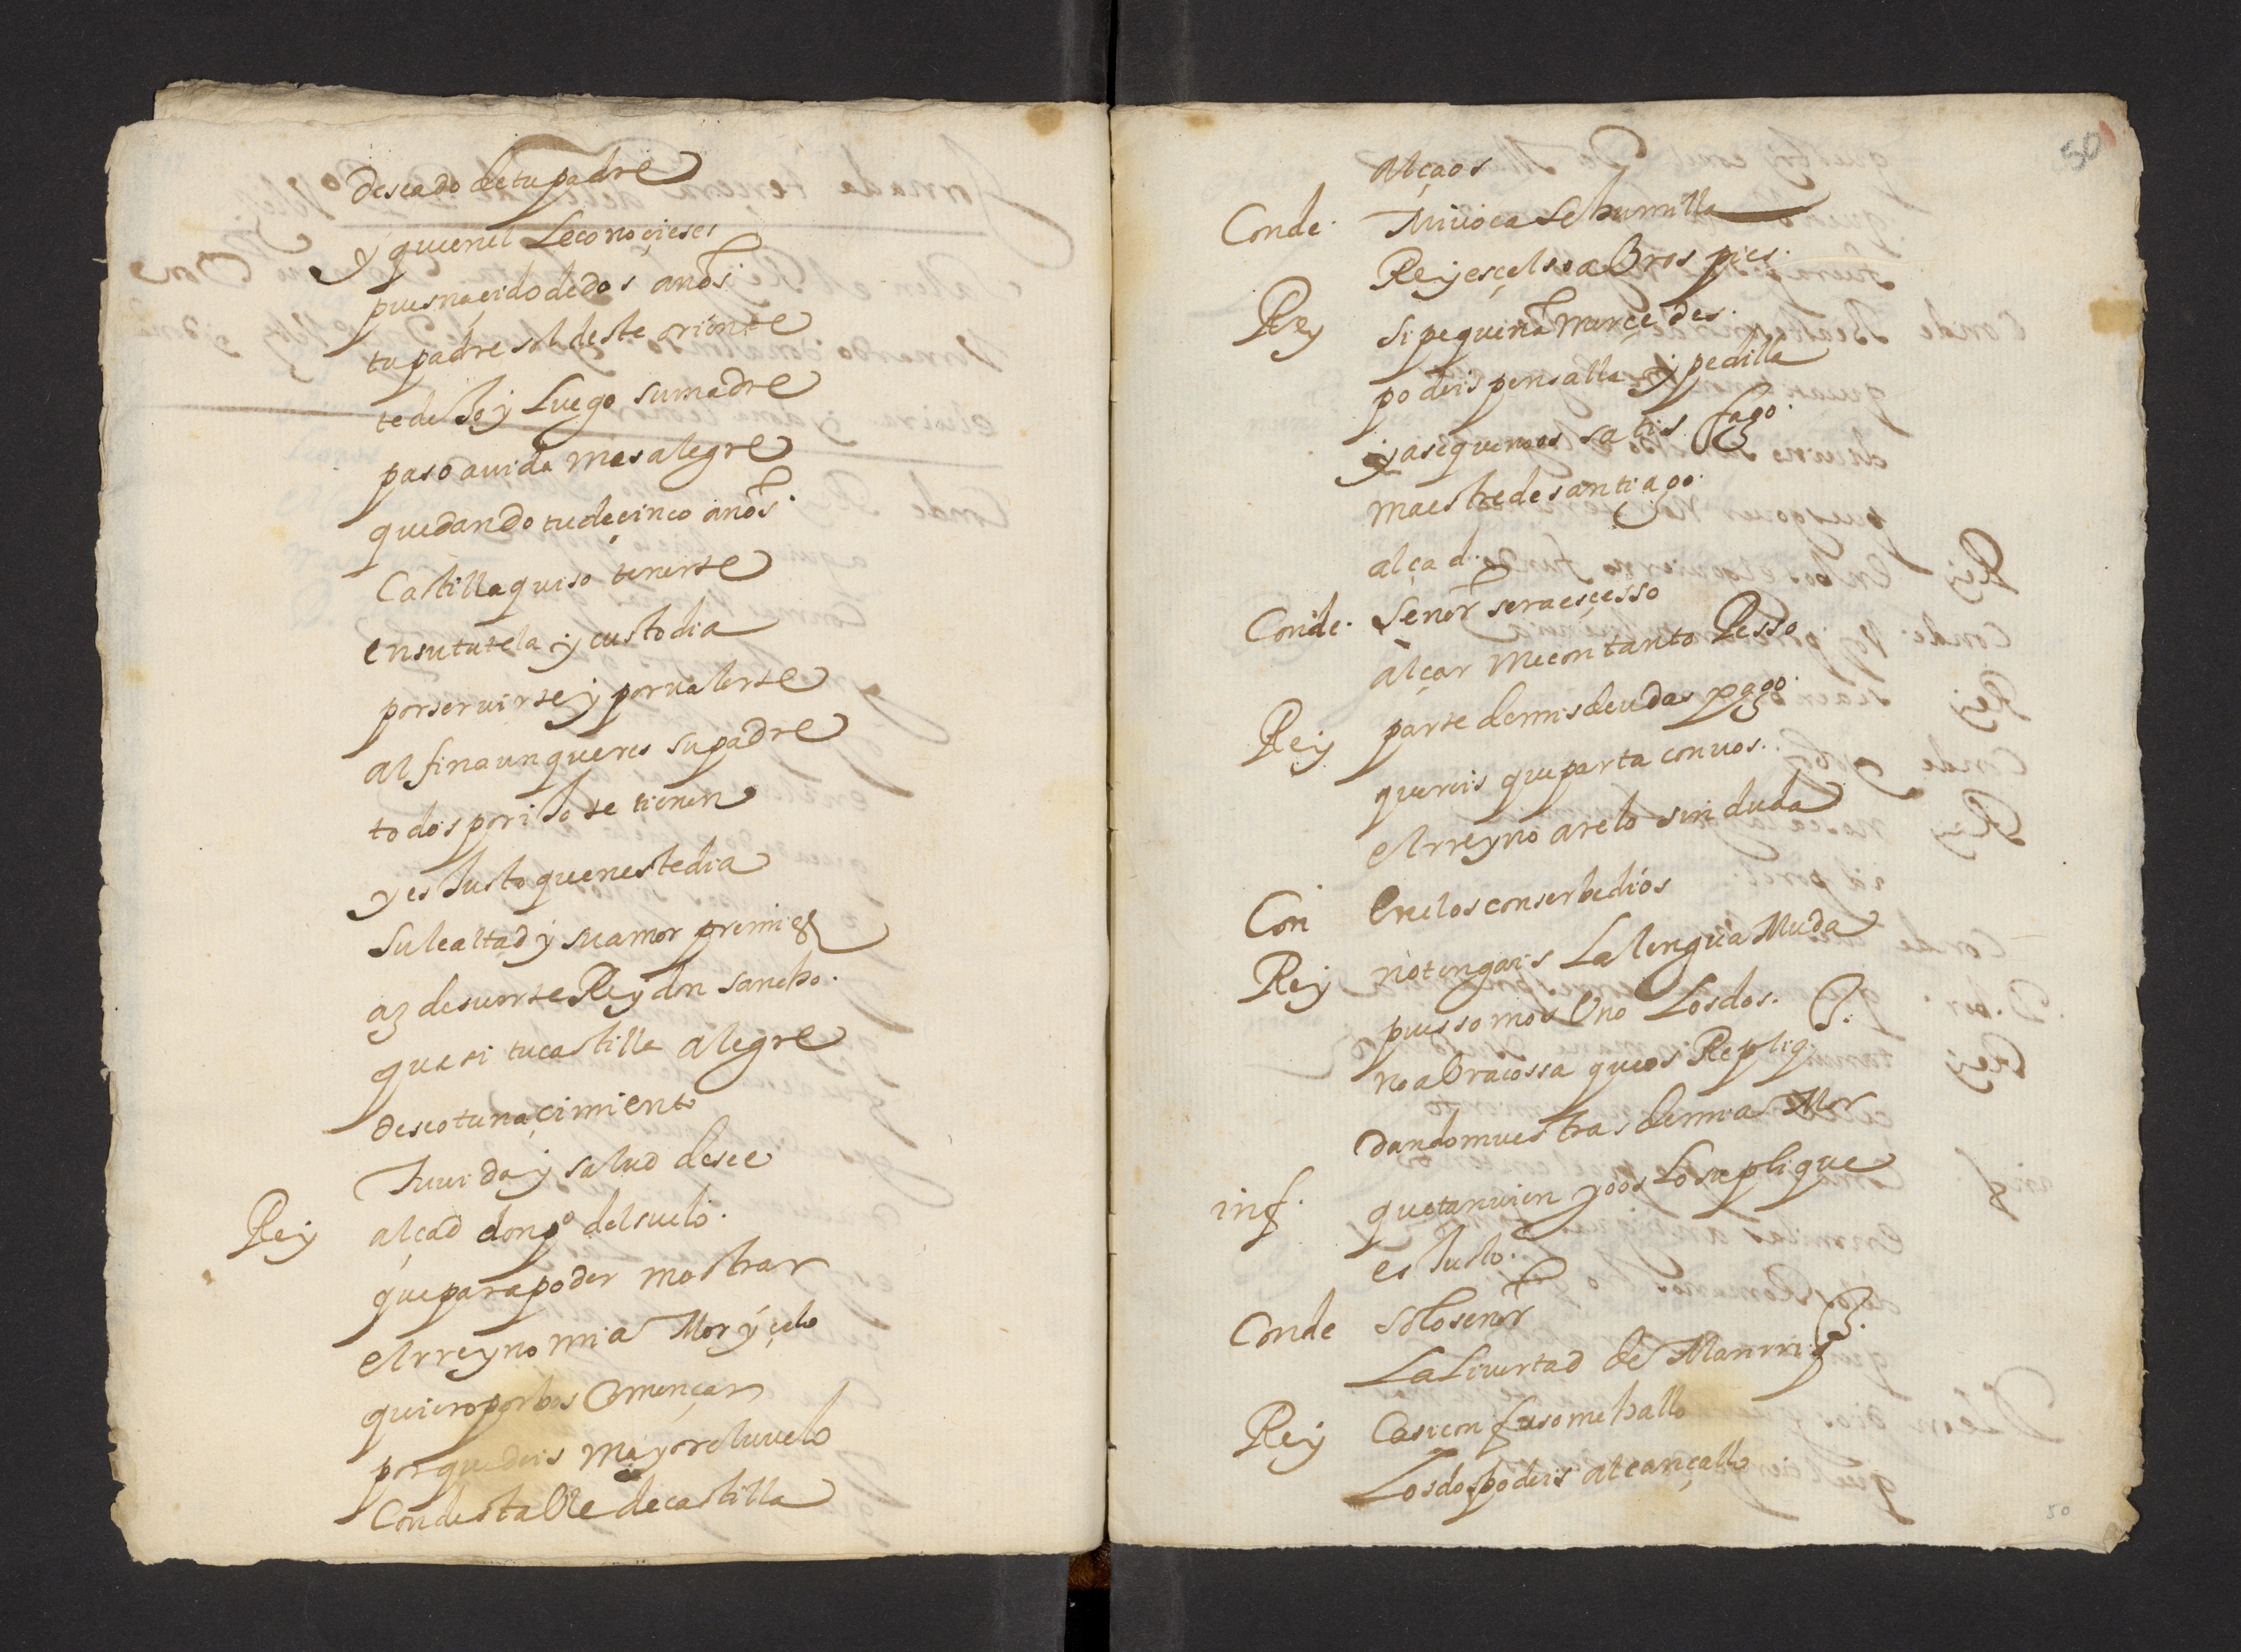 deseado de tu padre
y quien el le conoçiese
pues naçido de dos anos
tu padre sol deste oriente
te dexo y luego su madre
paso a vida mas alegre
quedando tu de çinco anos
Castilla quiso tenerte
en su tutela y custodia
por servirte y por valerte
al fin aunque eres su padre
todos por ijo te tienen
y es Justo quen este dia
su lealtad y su amor premies
az de suerte Rey don sancho.
que si tu castilla alegre
deseo tu naçimiento
Tu vida y salud desee
Rey alçad don po del suelo.
que para poder mostrar
el rreyno mi aMor y çelo
quiero por bos Començar
porque deis mayor el vuelo
Condestable de castilla
50
alçaos
Conde. Mi voca se humilla
Rey esçelso a Bros pies.
Rey si pequena merçedes.
podeis pensalla y pedilla
y asi quenos satisfago.
maestre de santiago.
alçad.
Conde. Senor sera esçesso
alçarme con tanto Pesso
Rey parte de mis deudas pago.
quereis que parta con vos.
el rreyno arelo sin duda
Con en el os conserbe dios
Rey no tengais La lengua Muda
pues somos Uno Los dos.
no abra cossa que os Repliq.
dando muestras de mi aMor
inf. que tanvien yo os Lo suplique
es Justo.
Conde solo senor
La Livertad de Manrriq.
Rey Casi confuso me hallo
Los dos podeis alcançallo
50